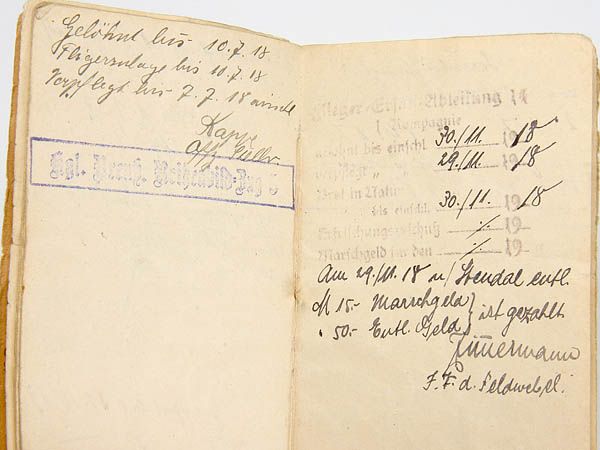 Gelöhnt bis 10.7.18
Fliegerzulage bis 10.7.18
Verpflegt bis 7.7.18 einschl
Kappe
Kgl. Preuß. Reihenbild-Zug
Flieger-Ersatz-Abteilung 14
Kompagnie
bis einschl. 30./11. 1918
verpflegt 29./11. 1918
Brot in Natur
bis einschl. 30./11. 1918
Erfrischungszuschuß ./. 19
Marschgeld für den ./. 19
Am 29./11.18 n/ Stendal entl.
M 15.- Marschgeld } ist gezahlt
" 50.- Entl. Geld
Zimmermann
F. F. d. Feldwebel.